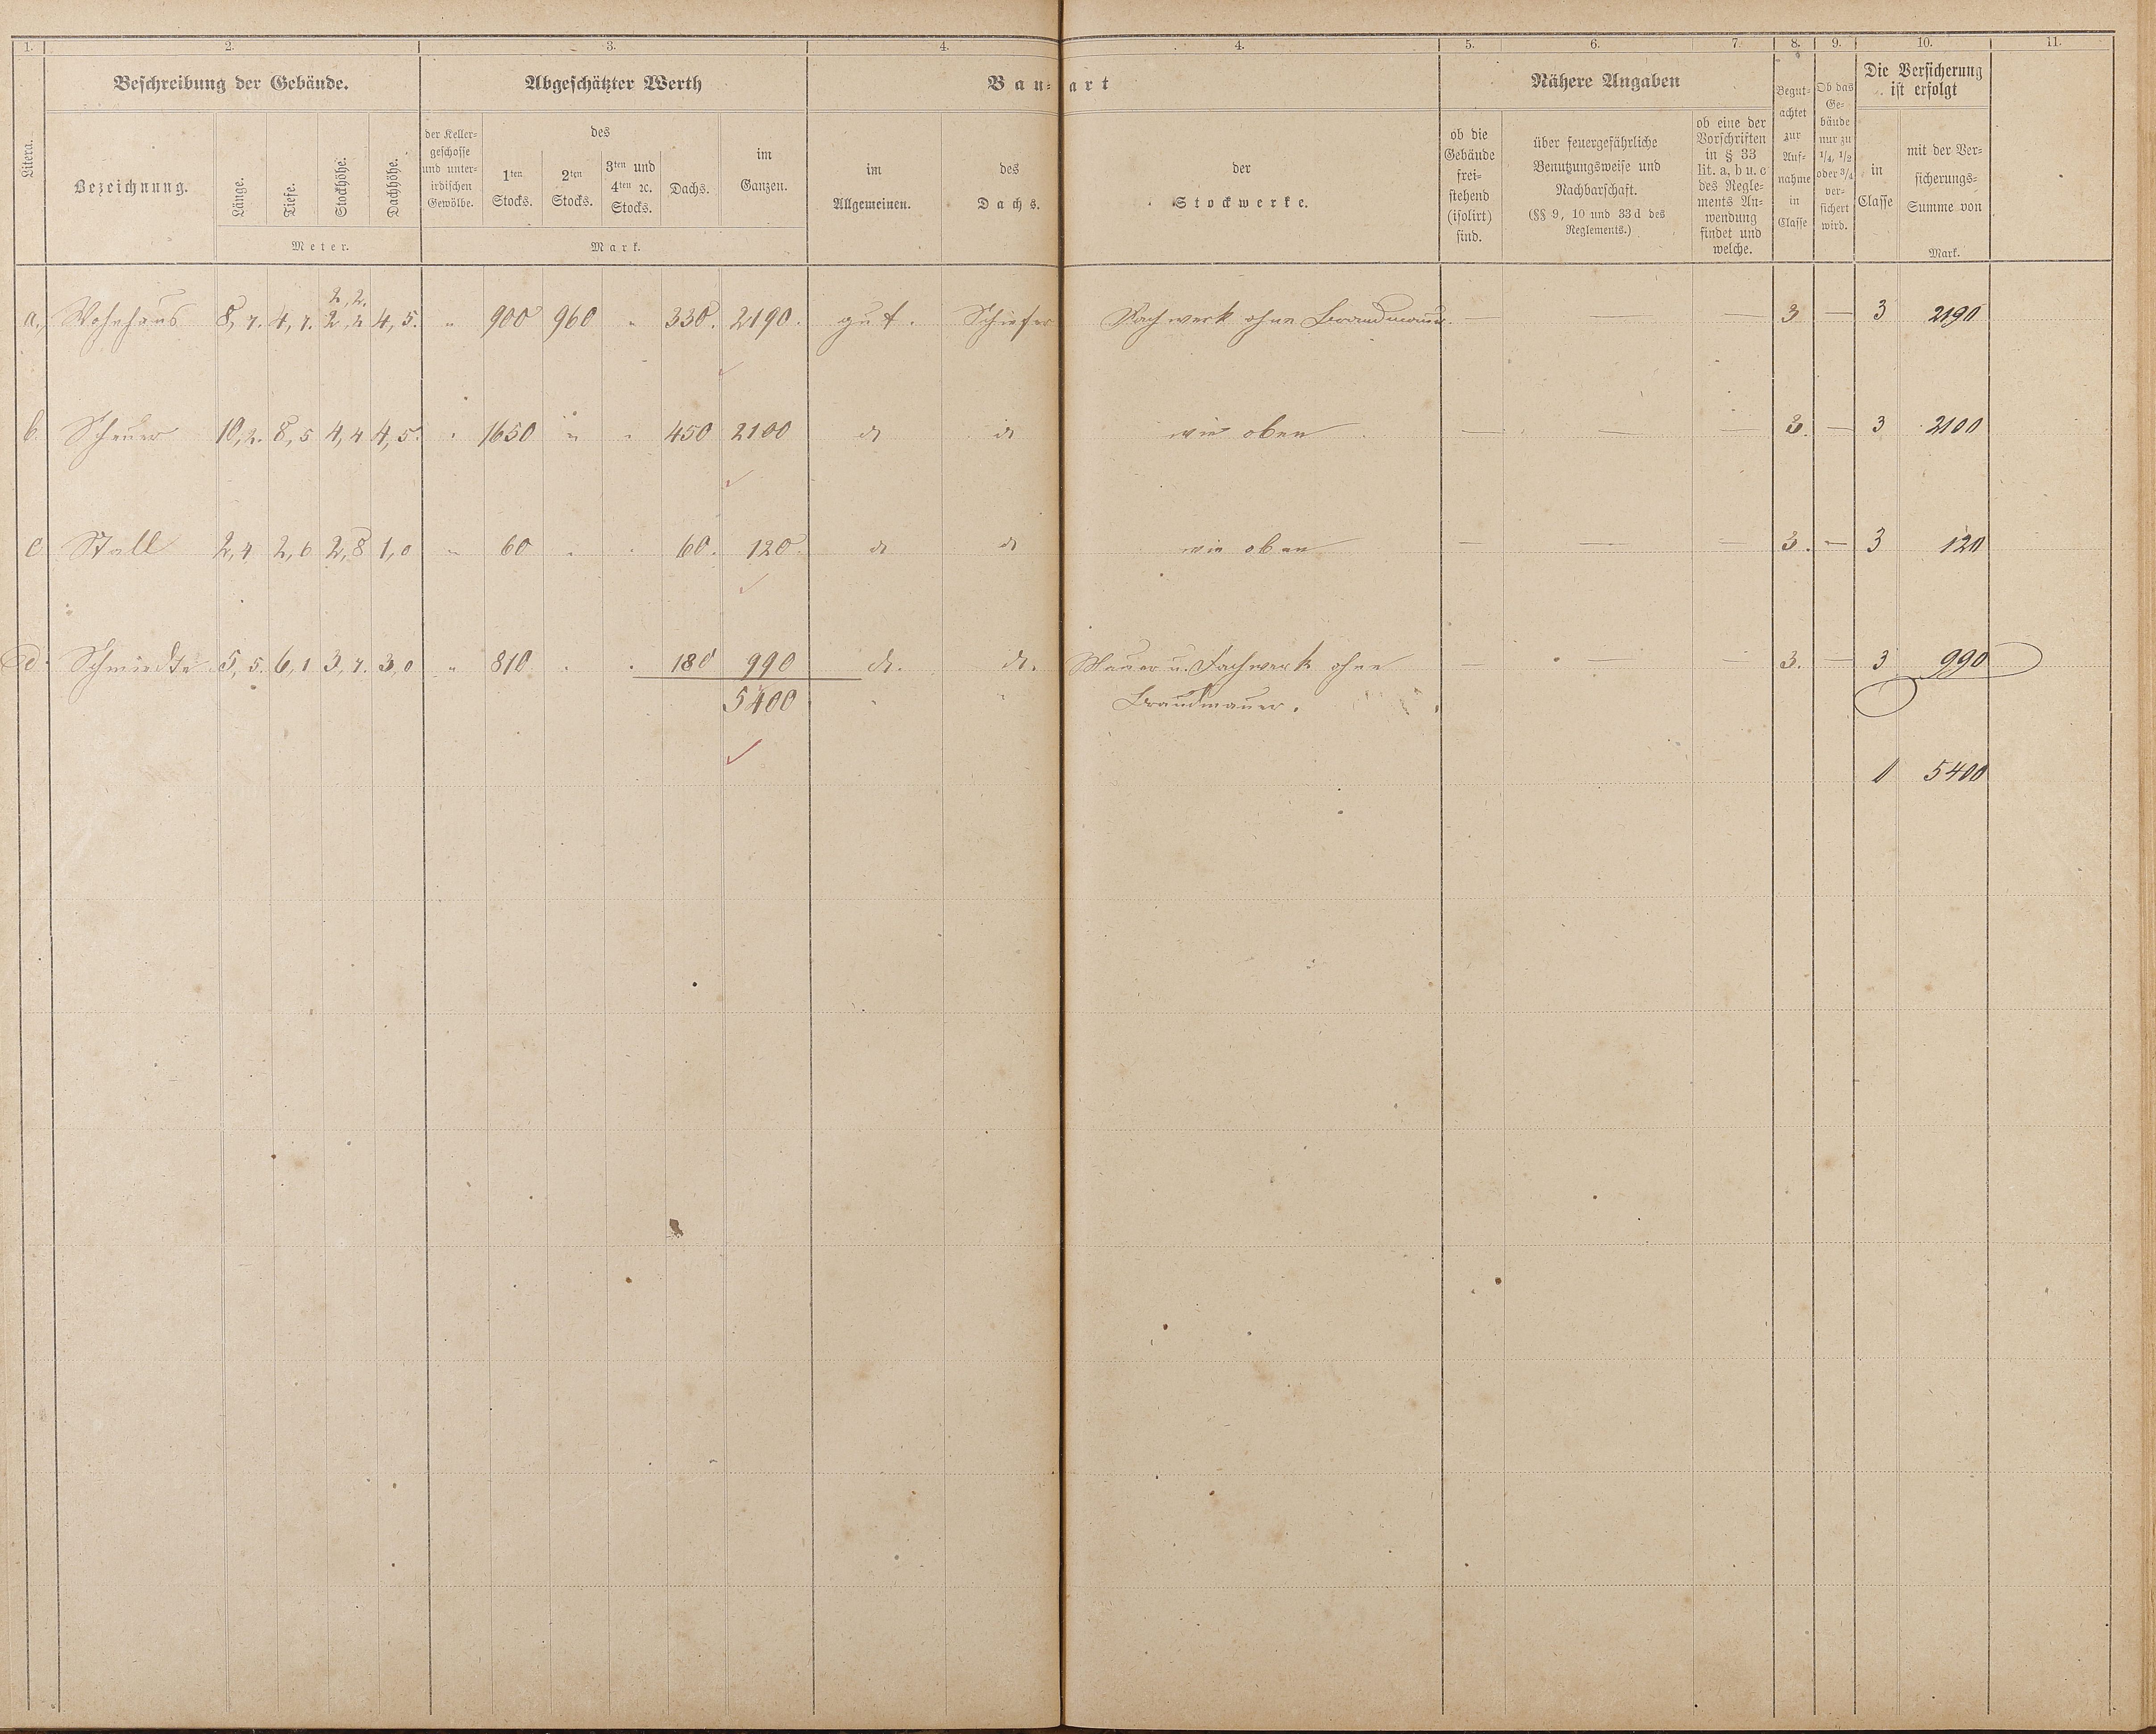 1. 2. 3. 4. 4. 5. 6. 7. 8. 9. 10. 11.
Litera.
Beschreibung der Gebäude.
Bezeichnung.
Länge.
Tiefe.
Stockhöhe.
Dachhöhe.
Meter.
Abgeschätzter Werth
der Keller-
geschosse
und unter-
irdischen
Gewölbe.
des
1ten
Stocks.
2ten
Stocks.
3ten und
4ten ꝛc.
Stocks.
Dachs.
im
Ganzen.
Mark.
Bau-art
im
Allgemeinen.
des
Dachs.
der
Stockwerke.
Nähere Angaben
ob die
Gebäude
frei-
stehend
(isolirt)
sind.
über feuergefährliche
Benutzungsweise und
Nachbarschaft.
(§§ 9, 10 und 33d des
Reglements.)
ob eine der
Vorschriften
in § 33
lit. a, b u. c
des Regle-
ments An-
wendung
findet und
welche.
Begut-
achtet
zur
Auf-
nahme
in
Classe
Ob das
Ge-
bäude
nur zu
1/4, 1/2
oder 3/4
ver-
sichert
wird.
Die Versicherung
ist erfolgt
in
Classe
mit der Ver-
sicherungs-
Summe von
Mark.
2,2.
a. Wohnhaus 8,7. 4,7. 2,2 4,5. " 900 960 " 330. 2190. gut. Schiefer Fachwerk ohne Brandmauer. — — — 3 — 3 2190
b. Scheuer 10,2. 8,5 4,4 4,5. " 1650 " " 450 2100 do do wie oben — — — 3. — 3 2100
c Stall 2,4 2,6 2,8 1,0 " 60 " " 60. 120. do do wie oben — — — 3. — 3 120
d. Schmiedte 5,5. 6,1 3,7. 3,0 " 810 " " 180 990 do. do. Mauer u. Fachwerk ohne — — — 3. — 3 990
5400 Brandmauer.
5400